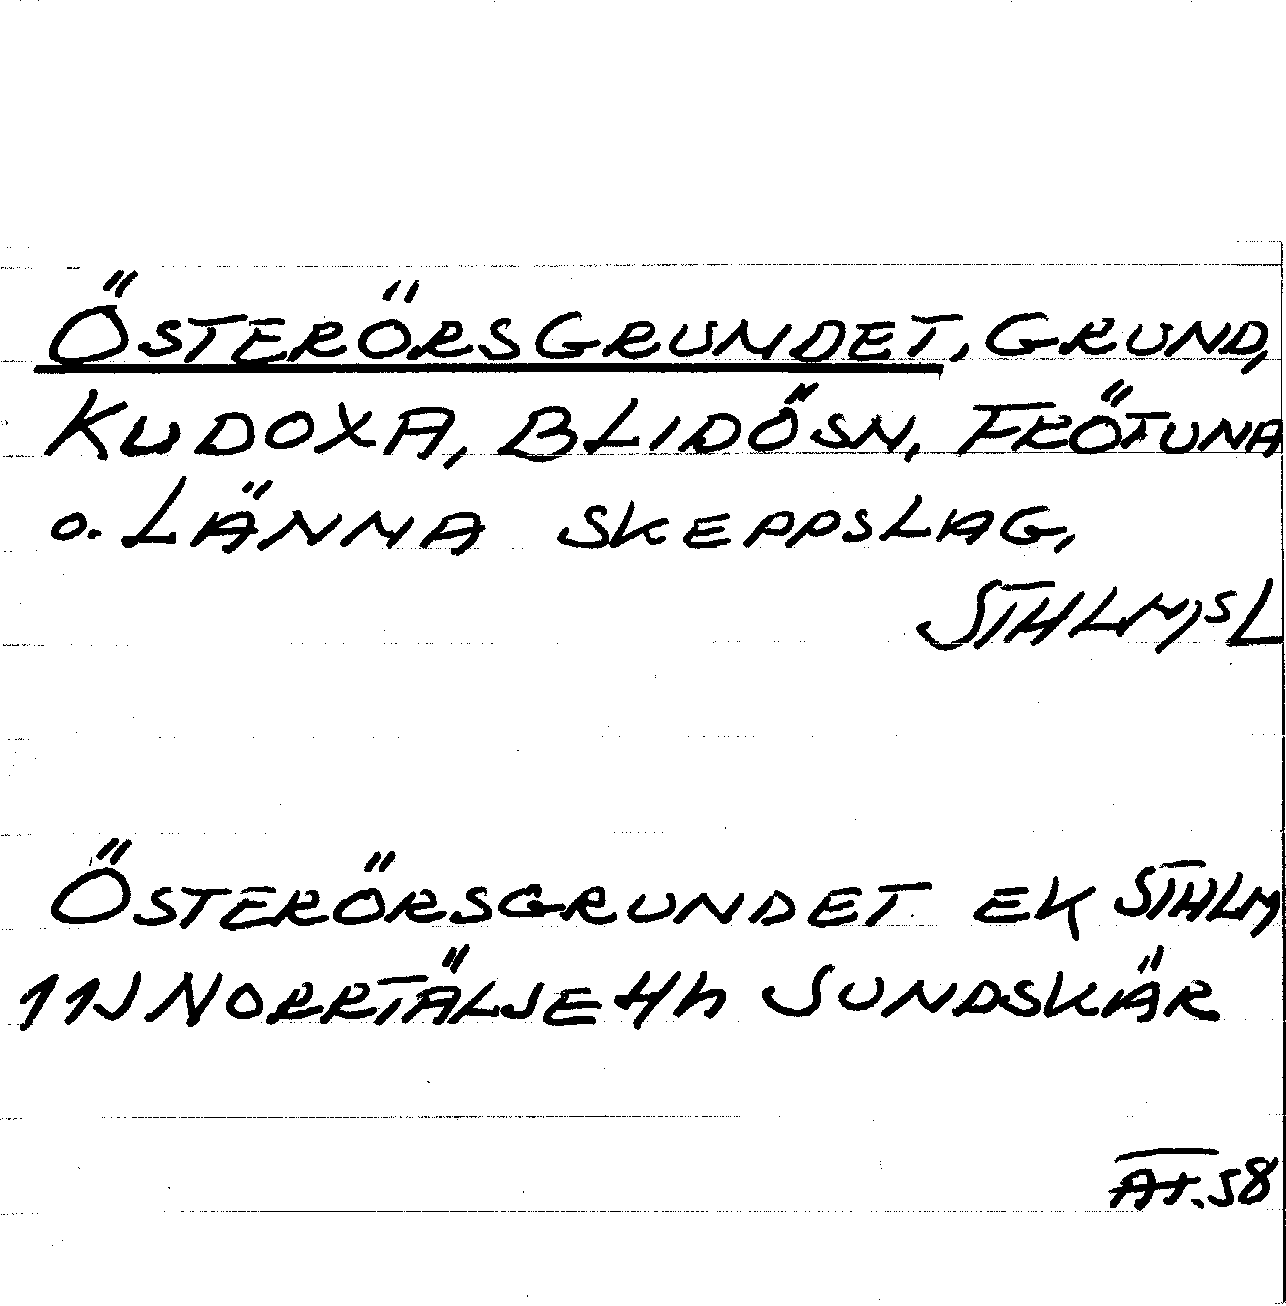 ÖSTERÖRSGRUNDET, GRUND,
KUDOXA, BLIDÖSN, FRÖTUNA
O. LÄNNA SKEPPSLAG,
STHLM,SL
ÖSTERÖRSGRUNDET EK STHLM
11J NORRTÄLJE 4h SUNDSKÄR
58